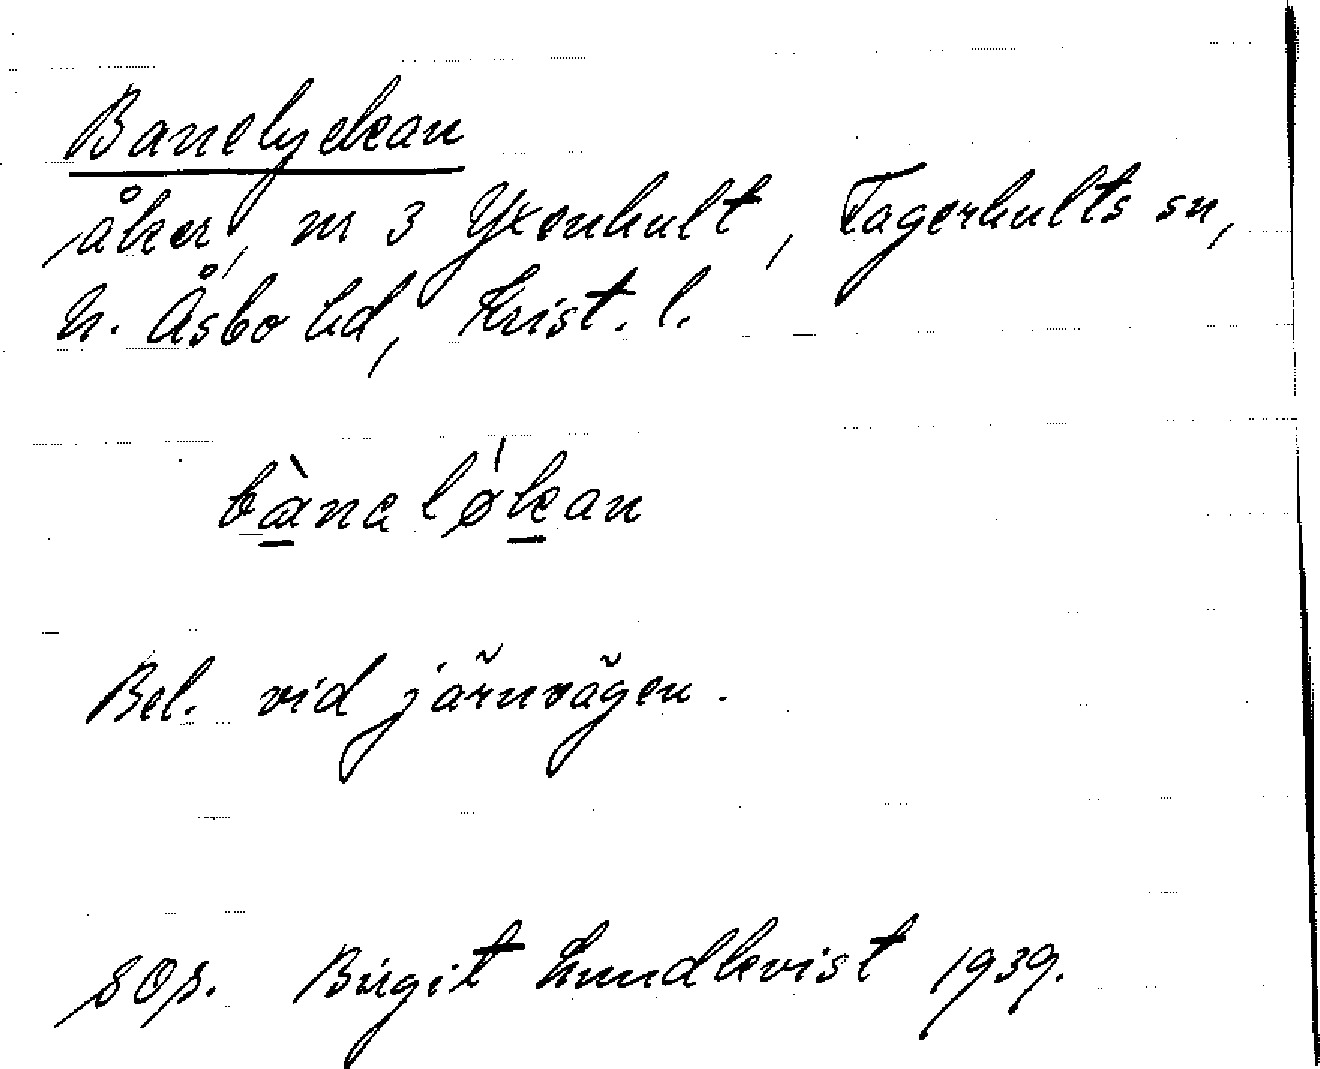 Banelyckan
åker, nr 3 Yxenhult, Fagerhults sn,
N. Åsbo hd, Krist. l.
bànaløkan
Bel. vid järnvägen.
SOs. Birgit Lundkvist 1939.